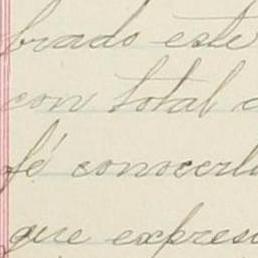 brado este
con total
fé conocerl
que expres